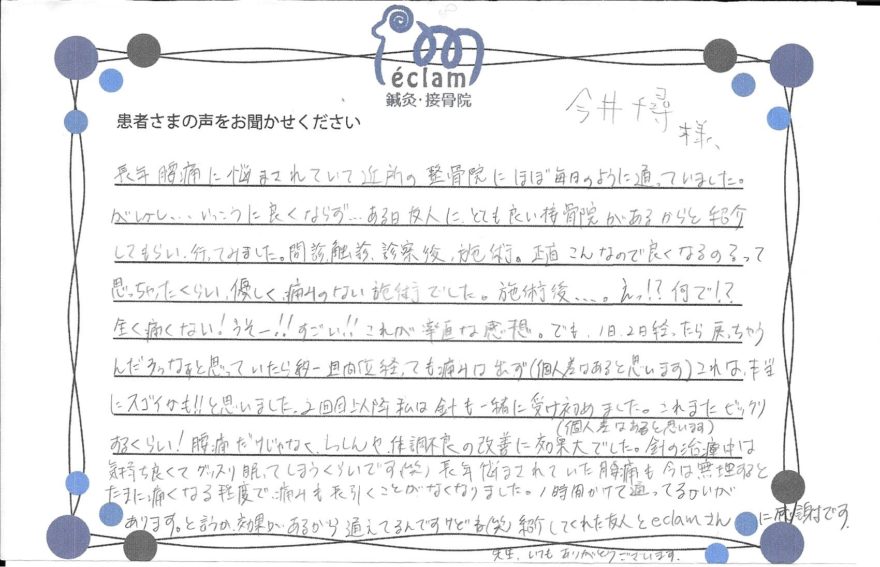 éclam
鍼灸・接骨院
患者さまの声をお聞かせください
今井千尋
様、
長年腰痛に悩まされていて近所の整骨院にほぼ毎日のように通っていました。
がしかし、、、いっこうに良くならず…ある日友人に、とても良い接骨院があるからと紹介
してもらい、行ってみました。問診、触診、診察後、施術。正直こんなので良くなるのろって
思っちゃったくらい、優しく、痛みのない施術でした。施術後...。えっ!?何で!?
全く痛くない!うそー!!すごい!!これが率直な感想。でも、1日、2日経ったら戻っちゃう
んだろうなぁと思っていたら約一週間位経っても痛みは出ず(個人差はあると思います)これは、本当
にスゴイかも!!と思いました。2回目以降私は針も一緒に受け初めました。これまたビックリ
(個人差はあると思います)
するくらい!腰痛だけじゃなく、しっしんや、体調不良の改善に効果大でした。針の治療中は
気持ち良くてグッスリ眠ってしまうくらいです(笑)長年悩まされていた腰痛も今は無理すると
たまに痛くなる程度で、痛みも長引くことがなくなりました。1時間かけて通ってるかいが
あります。と言うか、効果があるから通えてるんですけども(笑)紹介してくれた友人とeclamさんに感謝です。
先生、いつもありがとうございます。